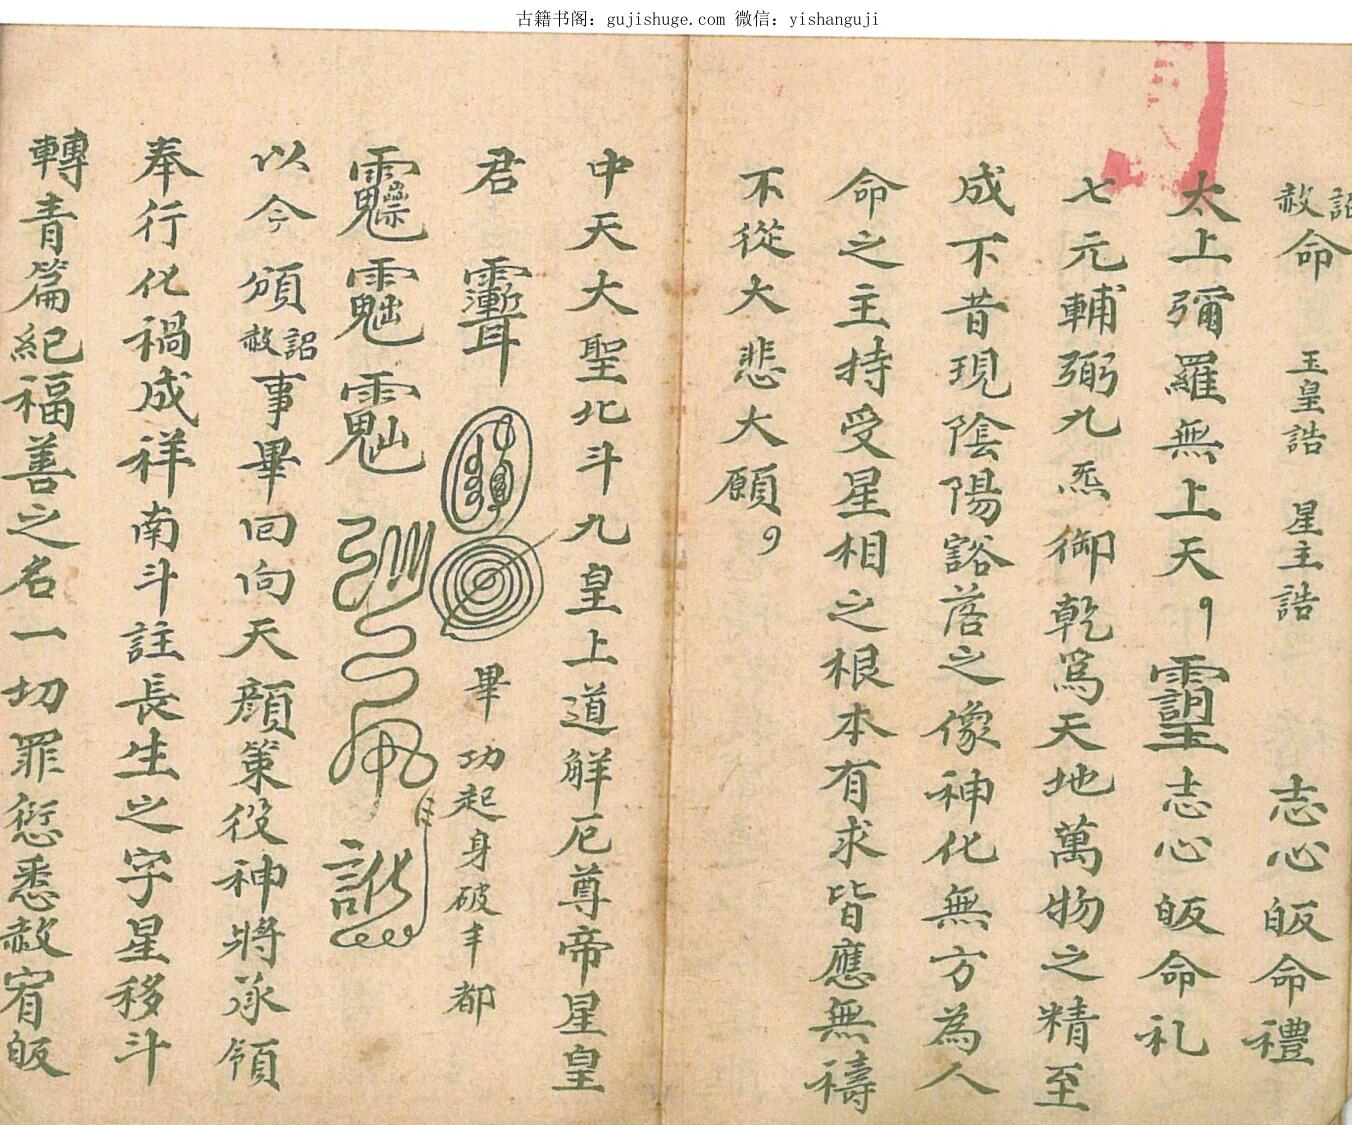 古籍书阁：gujishuge.com 微信：yishanguji
詔赦命 玉皇誥 星主誥 志心皈命禮
太上彌羅無上天 志心皈命礼
七元輔弼九炁御乾為天地萬物之精至
成不昔現陰陽豁落之像神化無方為人
命之主持受星相之根本有求皆應無禱
不從大悲大願
中天大聖北斗九皇上道解厄尊帝星皇
君 畢功起身破丰都
以今頒詔赦事畢回向天顔策役神將承領
奉行化禍成祥南斗註長生之字星移斗
轉青篇紀福善之名一切罪愆悉赦宥皈